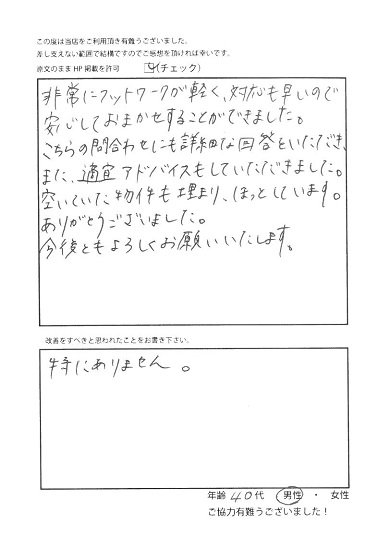 この度は当店をご利用頂き有難うございました。
差し支えない範囲で結構ですのでご感想を頂ければ幸いです。
原文のままHP掲載を許可 ☑(チェック)
非常にフットワークが軽く、対応も早いので
安心しておまかせすることができました。
こちらの問合わせにも詳細な回答をいただき、
また、適宜アドバイスもしていただきました。
空いていた物件も埋まり、ほっとしています。
ありがとうございました。
今後ともよろしくお願いいたします。
改善をすべきと思われたことをお書き下さい。
特にありません。
年齢 40代 男性 ・ 女性
ご協力有難うございました！